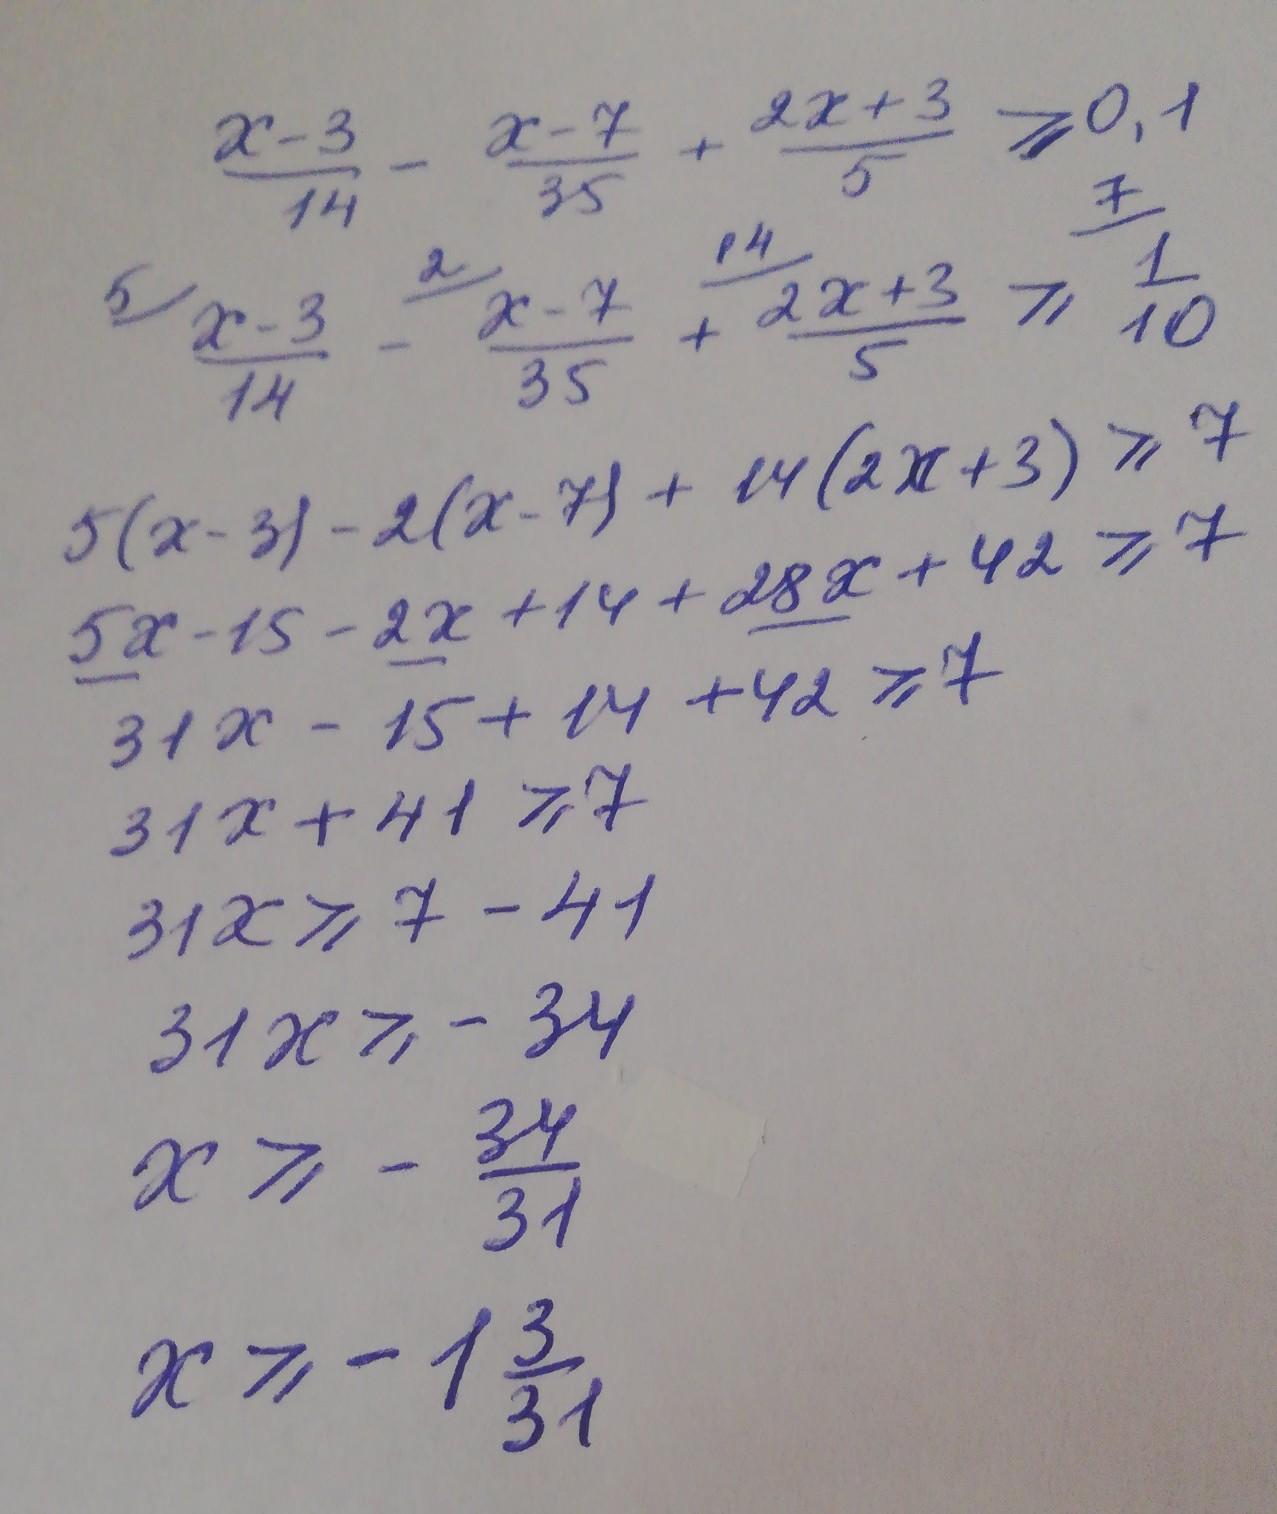 x-3/14 - x-7/35 + 2x+3/5 ⩾ 0,1
5/ x-3/14 - 2/ x-7/35 + 14/ 2x+3/5 ⩾ 7/ 1/10
5(x-3) - 2(x-7) + 14(2x+3) ⩾ 7
5x - 15 - 2x + 14 + 28x + 42 ⩾ 7
31x - 15 + 14 + 42 ⩾ 7
31x + 41 ⩾ 7
31x ⩾ 7 - 41
31x ⩾ - 34
x ⩾ - 34/31
x ⩾ - 1 3/31